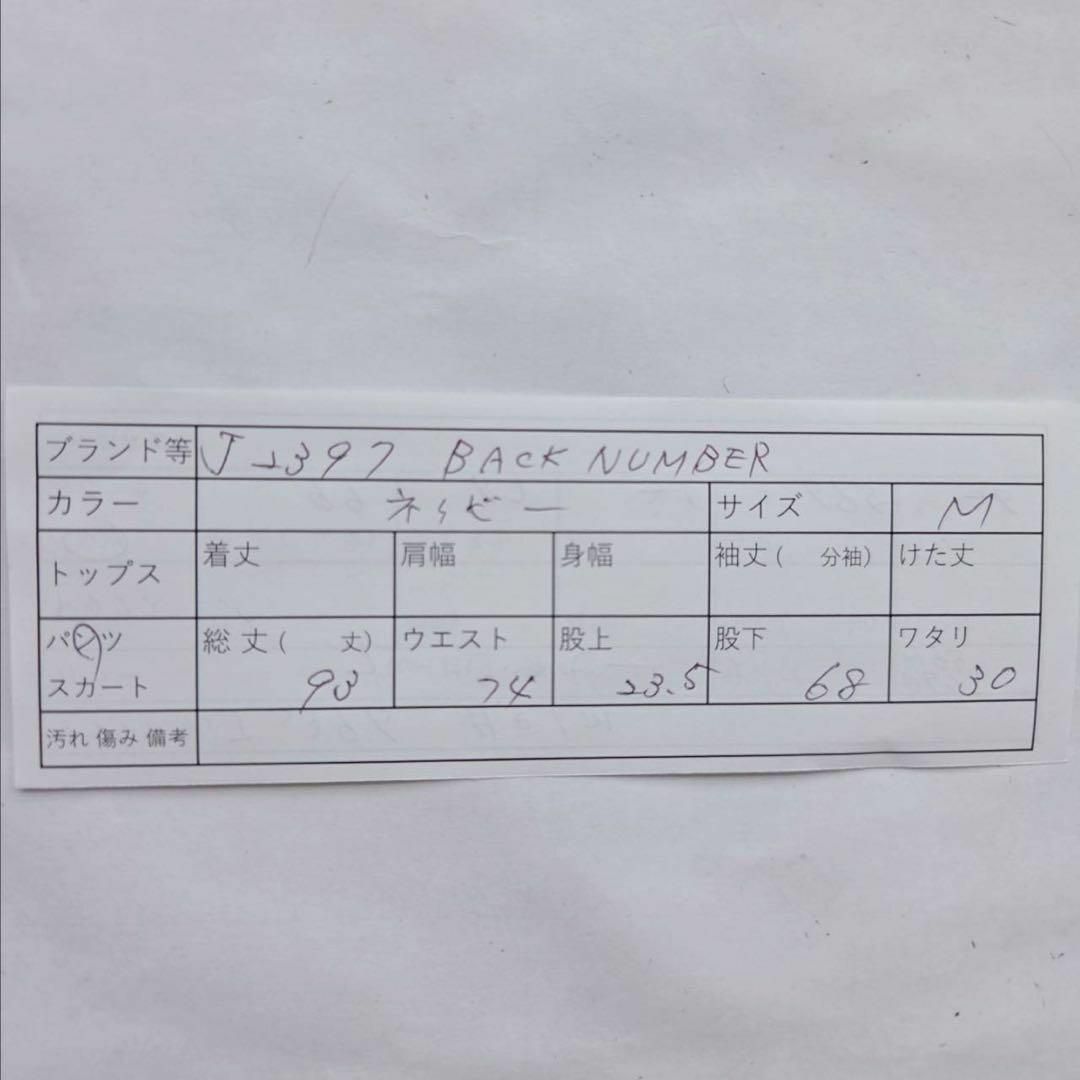 ブランド等 J2397 BACK NUMBER
カラー ネイビー サイズ M
トップス 着丈 肩幅 身幅 袖丈( 分袖) けた丈
パンツ 総丈( 丈) ウエスト 股上 股下 ワタリ
スカート 93 74 23.5 68 30
汚れ 傷み 備考